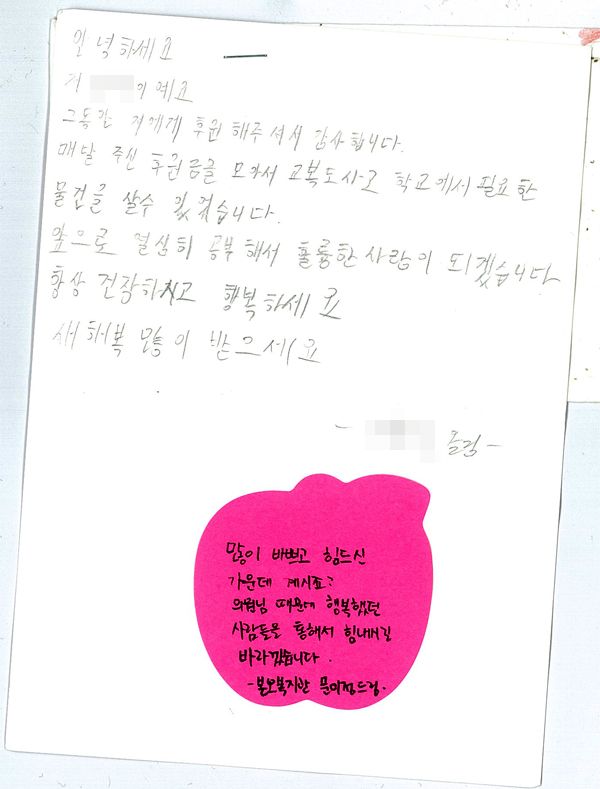 안녕하세요
저 이예요
그동안 저에게 후원 해주셔서 감사합니다.
매달 주신 후원금을 모아서 교복도사고 학교에서 필요한
물건을 살수 있었습니다.
앞으로 열심히 공부해서 훌륭한사람이 되겠습니다
항상 건강하시고 행복하세요
새해복 많이 받으세요
- 올림-
많이 바쁘고 힘드신
가운데 계시죠?
의원님 때문에 행복했던
사람들을 통해서 힘내시길
바라겠습니다.
-본오복지관 드림.